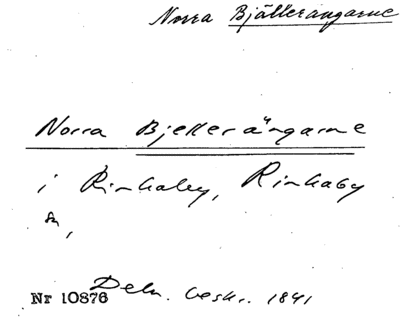 Norra Bjällerängarne
Norra Bjellerängarne
i Rinkaby, Rinkaby
sn,
Nr 10876 Deln. beskr. 1841